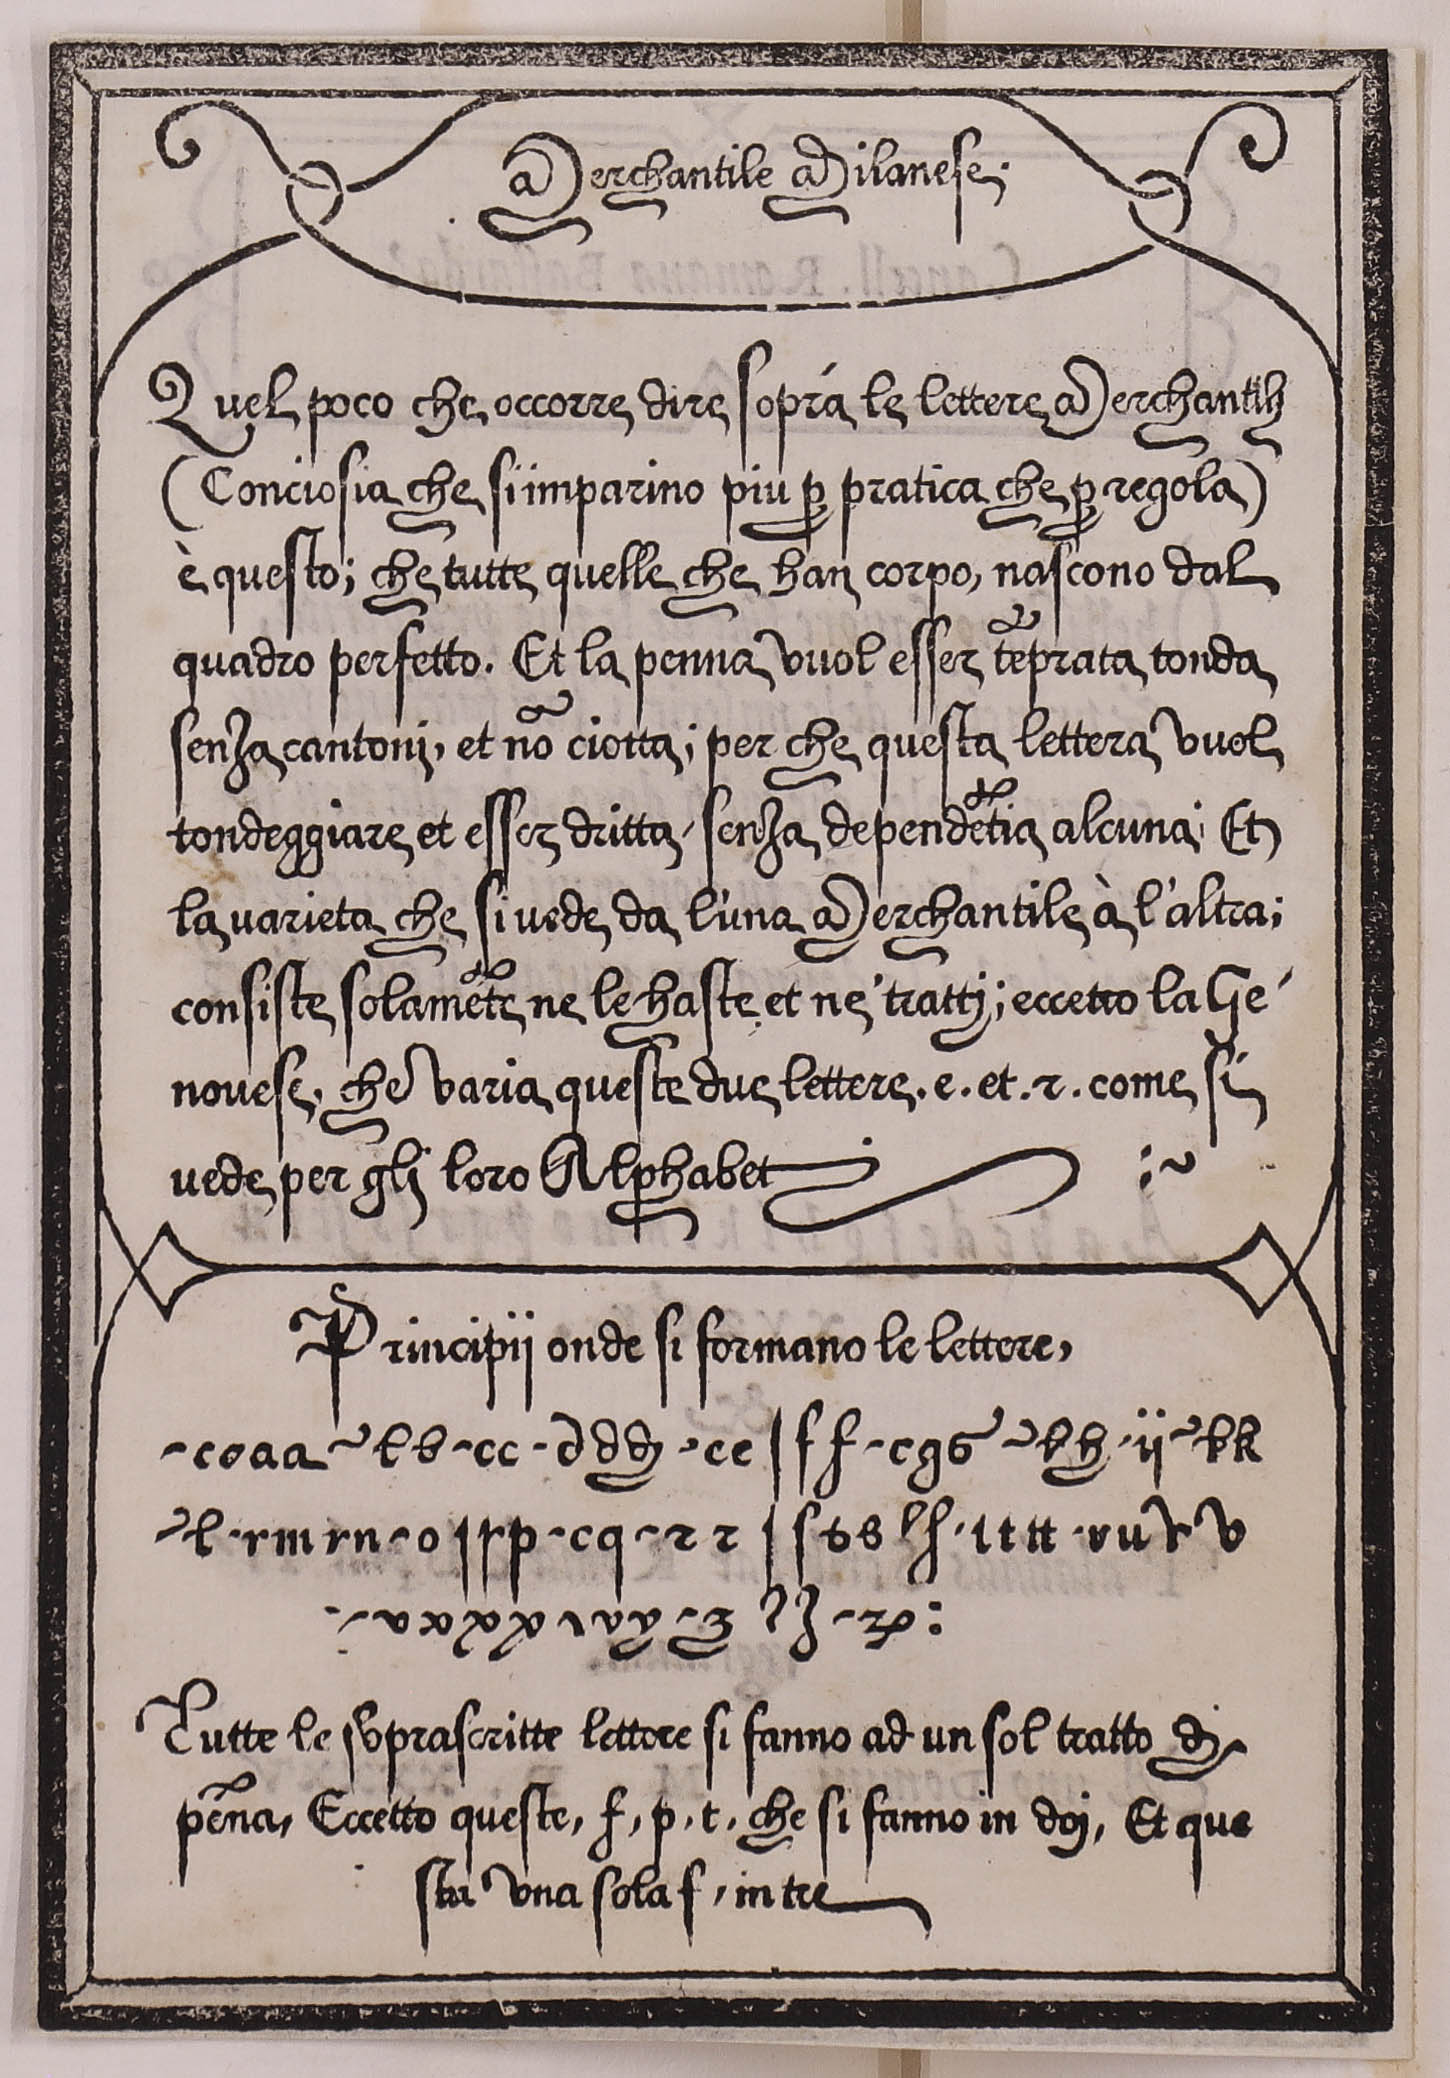 Merchantile Milanese.
Quel poco che occorre dire sopra le lettere Merchantili
(Conciosia che si imparino piu ꝑ pratica che ꝑ regola)
è questo; che tutte quelle che han corpo, nascono dal
quadro perfetto. Et la penna vuol esser tẽprata tonda
senza cantoni, et nõ ciotta; per che questa lettera vuol
tondeggiare et esser dritta, senza dependẽtia alcuna; Et
la varieta che si vede da l'una Merchantile à l'altra;
consiste solamẽte ne le haste et ne' tratti; eccetto la Ge
novese, che varia queste due lettere. e. et. r. come si
vede per gli loro Alphabet :~
Principii onde si formano le lettere,
-coaa ~lb-cc-ddd-ce ſf-cgɢ ~lh-ij ~kk
~l-rm rn-o ſſp-cq-rr ſſɢs ſſ-ıttt-vuvv
-vxxxx ıvy-z ʒ-ꝝ:
Tutte le soprascritte lettere si fanno ad un sol tratto di
pẽna, Eccetto queste, f, p, t, che si fanno in doi, Et que
sta una sola f, in tre